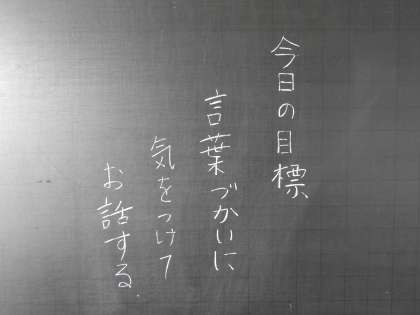 今日の目標
言葉づかいに
気をつけて
お話する.